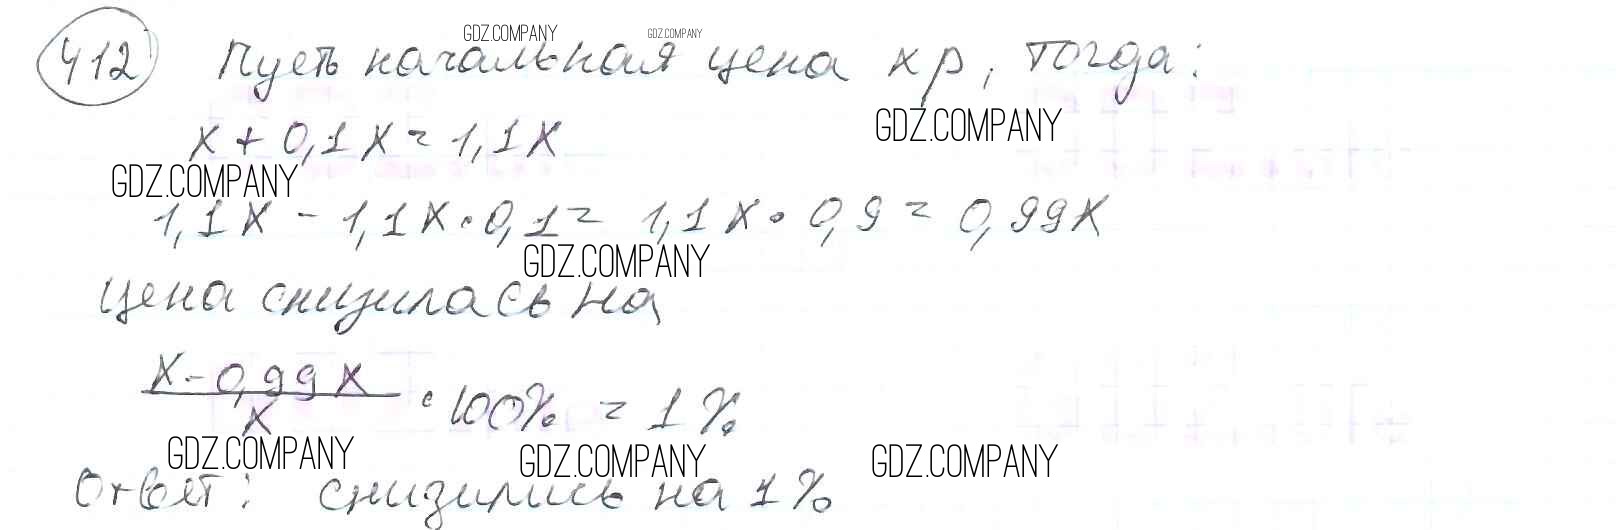 GDZ.COMPANY GDZ.COMPANY
412 Пусть начальная цена x р, тогда:
GDZ.COMPANY
x + 0,1x = 1,1x
GDZ.COMPANY
1,1x - 1,1x · 0,1 = 1,1x · 0,9 = 0,99x
GDZ.COMPANY
Цена снизилась на
x - 0,99x
x
· 100% = 1%
GDZ.COMPANY GDZ.COMPANY GDZ.COMPANY
Ответ: снизились на 1%